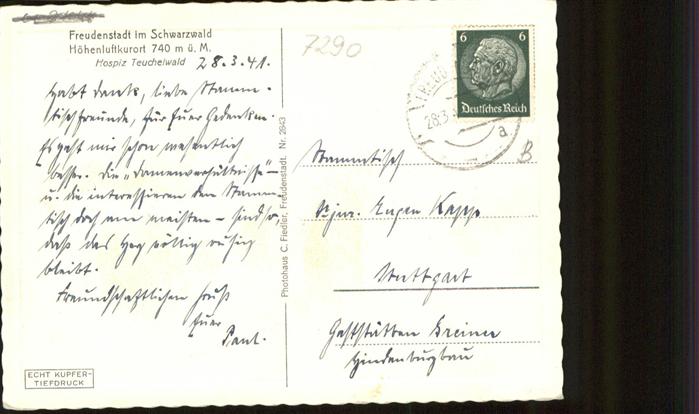 Freudenstadt im Schwarzwald
Höhenluftkurort 740 m ü. M.
Hospiz Teuchelwald 28.3.41.
7290
Habt Dank, liebe Stamm-
tischfreunde, für Euer Gedenken.
Es geht mir schon wesentlich
besser. Die „Damenverhältnisse" –
u. die interessieren den Stamm-
tisch doch am meisten – sind so,
daß das Herz völlig ruhig
bleibt.
Freundschaftlichen Gruß
Euer
Paul.
ECHT KUPFER-
TIEFDRUCK
Photohaus C. Fiedler, Freudenstadt. Nr. 2843
6 6
Deutsches Reich
28.3.
a
B
Stammtisch
Eugen Kapp
Stuttgart
Gaststätten Greiner
Hindenburgbau